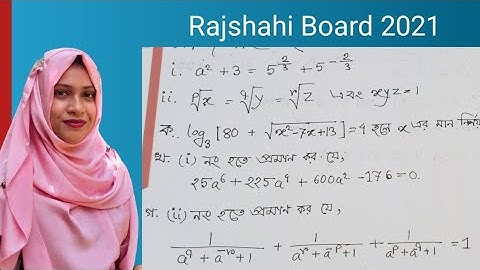 Rajshahi Board 2021
i. a² + 3 = 5^(2/3) + 5^(-2/3)
ii. ᵖ√x = ᑫ√y = ʳ√z এবং xyz = 1
ক. log₃ [80 + √(x²-7x+13)] = 4 হলে x এর মান নির্ণয়
খ. (i) নং হতে প্রমাণ কর যে,
25a⁶ + 225a⁴ + 600a² - 176 = 0.
গ. (ii) নং হতে প্রমাণ কর যে,
1/(a^q + a^-r + 1) + 1/(a^r + a^-p + 1) + 1/(a^p + a^-q + 1) = 1